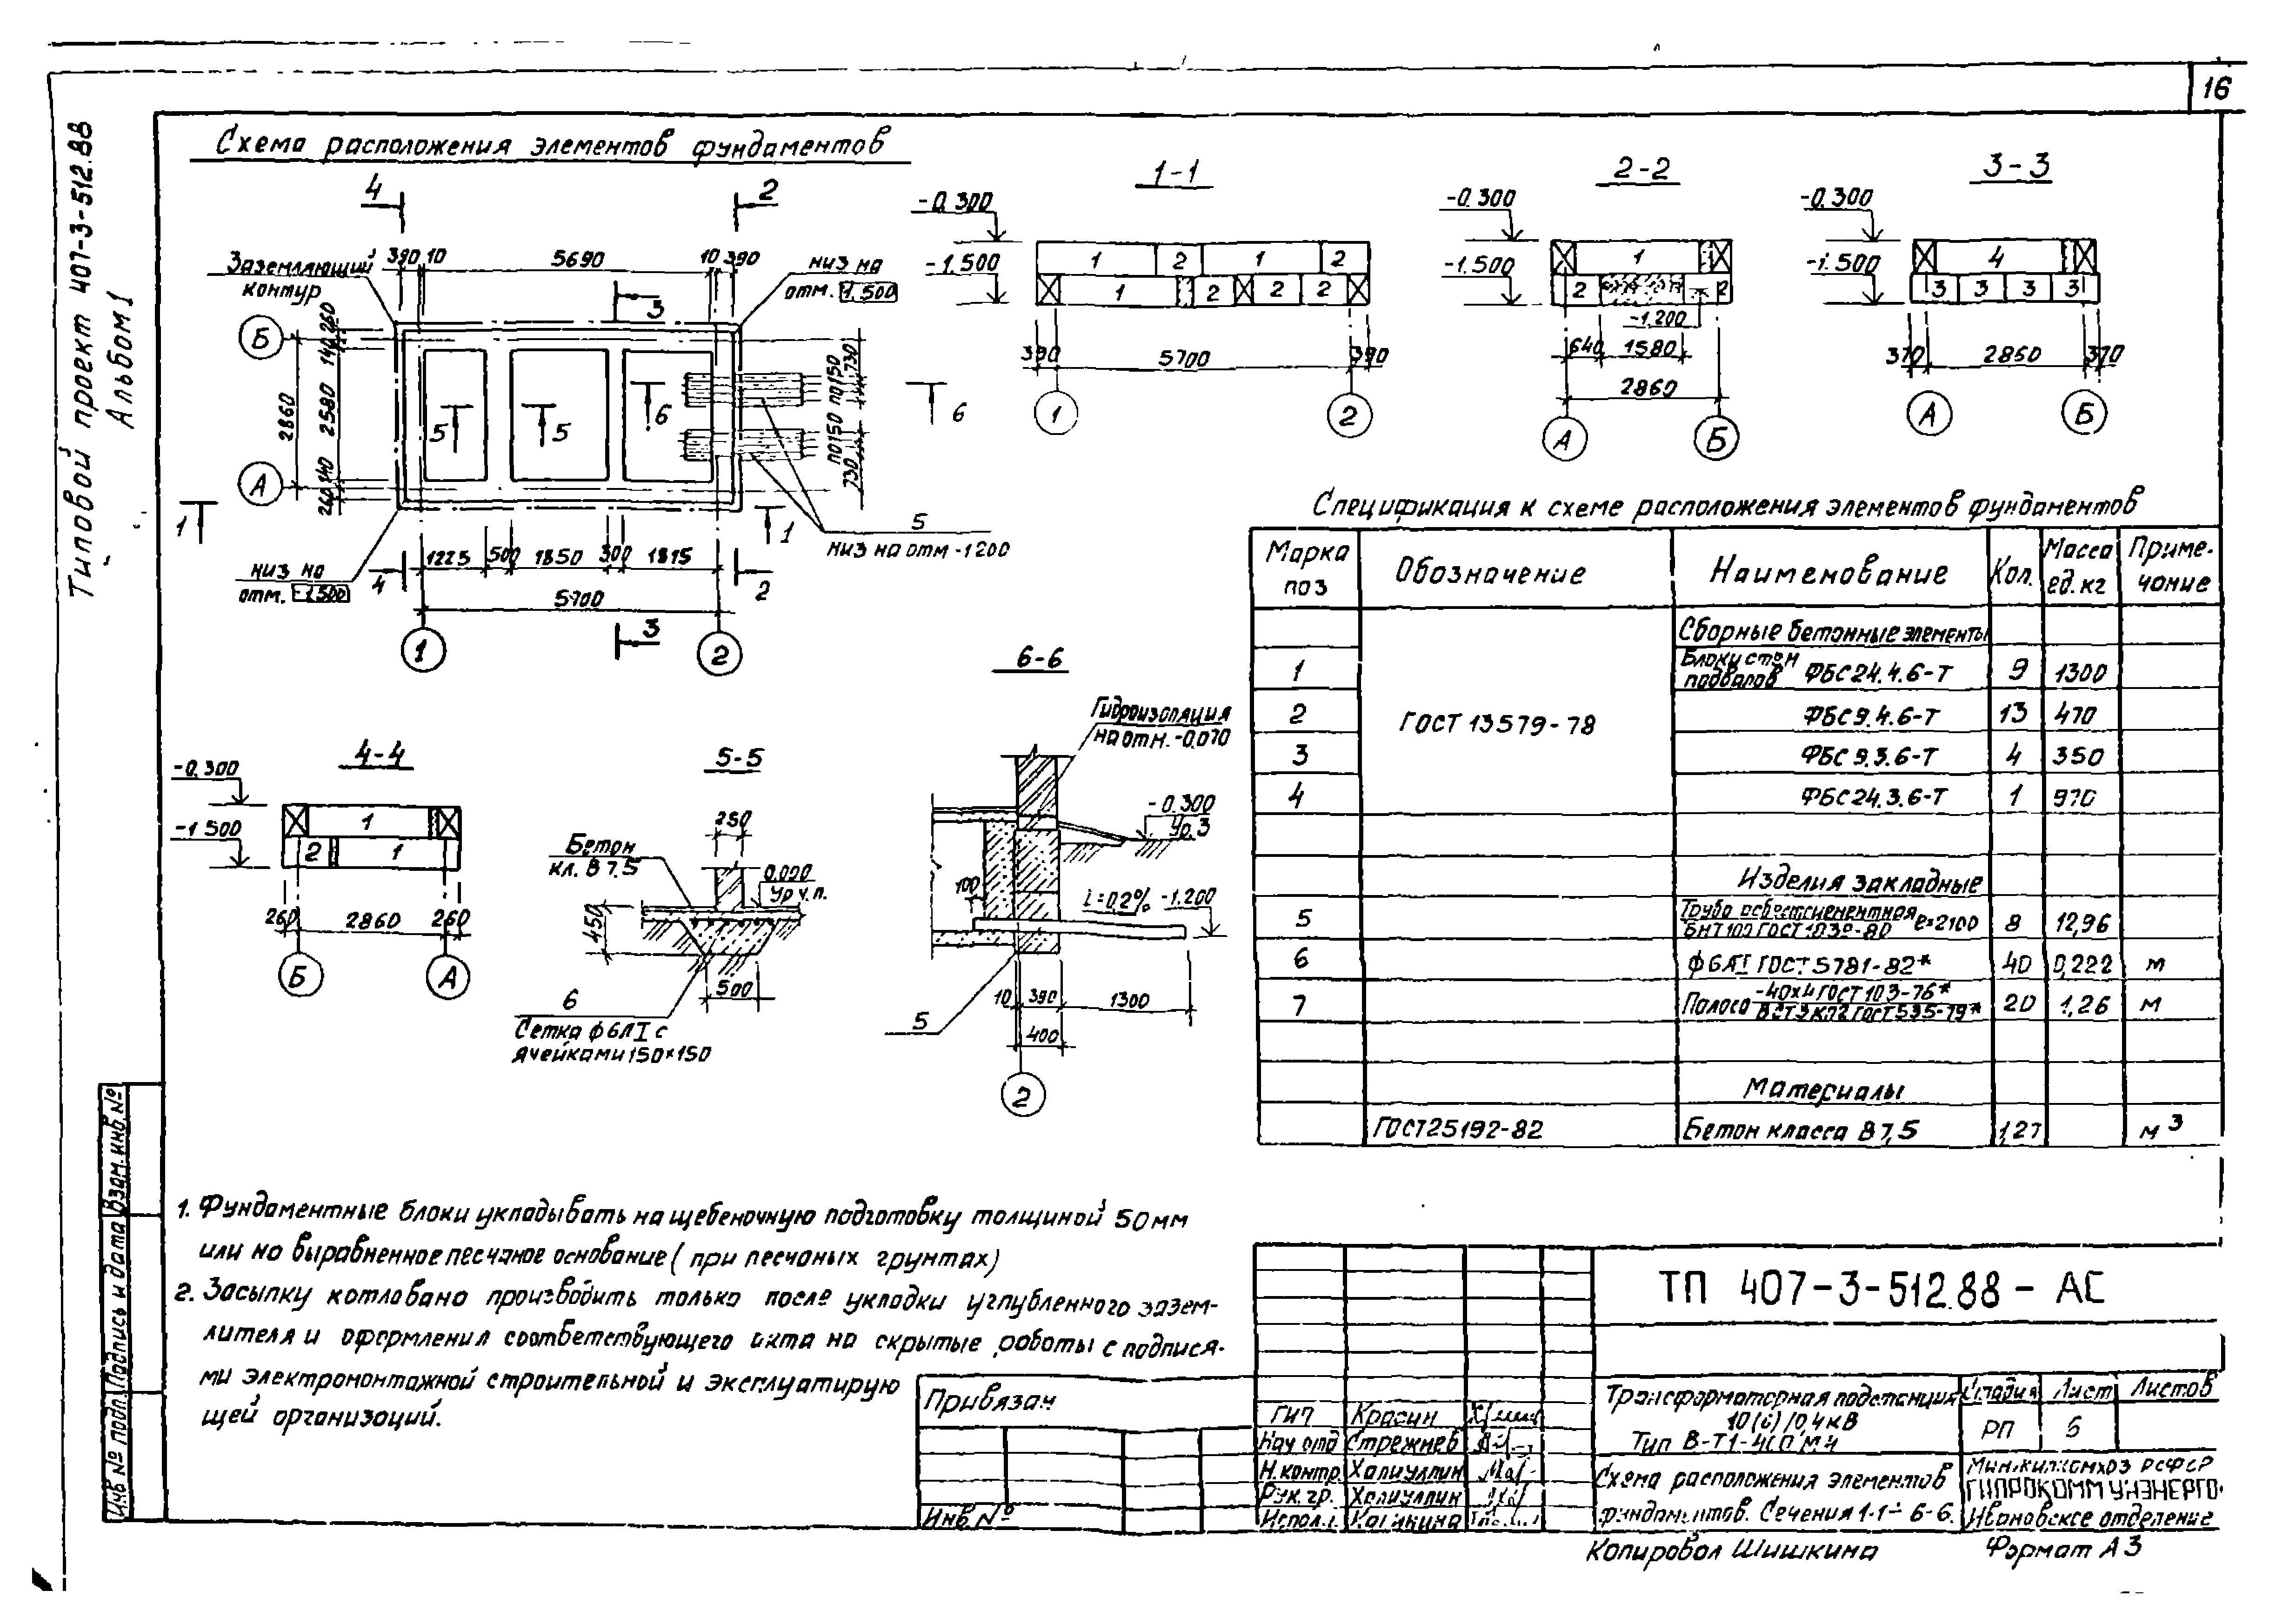 16
Типовой проект 407-3-512.88
Альбом 1
Схема расположения элементов фундаментов
4
2
Заземляющий
контур
390 10
5690
10 390
низ на
отм. -1.500
3
Б
А
140 260
2580
260 140
2860
5
5
6
6
730
по150 по150
730
1
1
5
низ на отм -1200
низ на
отм. -1.500
4
1225
500
1850
300
1815
2
5700
3
1
2
1-1
-0.300
-1.500
1
2
1
2
1
2
2
2
390
5700
390
1
2
2-2
-0.300
-1.500
1
2
2
-1.200
640
1580
2860
А
Б
3-3
-0.300
-1.500
4
3
3
3
3
370
2860
370
А
Б
4-4
-0.300
-1500
1
2
1
260
2860
260
Б
А
5-5
250
Бетон
кл. В 7,5
0.000
Ур.ч.п.
450
500
6
Сетка ф6АI с
ячейками 150×150
6-6
Гидроизоляция
на отм. -0.070
-0.300
Ур.3
100
i=0,2%
-1.200
10
390
1300
400
5
2
Спецификация к схеме расположения элементов фундаментов
Марка поз
Обозначение
Наименование
Кол.
Масса ед. кг
Примечание
Сборные бетонные элементы
1
Блоки стен подвалов ФБС24.4.6-Т
9
1300
2
ГОСТ 13579-78
ФБС9.4.6-Т
13
470
3
ФБС9.3.6-Т
4
350
4
ФБС24.3.6-Т
1
970
Изделия закладные
5
Труба асбестцементная БНТ100 ГОСТ 1839-80 ℓ=2100
8
12,96
6
ф6АI ГОСТ 5781-82*
40
0,222
м
7
Полоса -40×4 ГОСТ 103-76* В Ст3кп2 ГОСТ 535-79*
20
1,26
м
Материалы
ГОСТ25192-82
Бетон класса В 7,5
1,27
м3
1. Фундаментные блоки укладывать на щебеночную подготовку толщиной 50мм
или на выравненное песчаное основание (при песчаных грунтах)
2. Засыпку котлована производить только после укладки углубленного зазем-
лителя и оформления соответствующего акта на скрытые работы с подпися-
ми электромонтажной строительной и эксплуатирую
щей организаций.
Привязан
Инв №
ТП 407-3-512.88 - АС
Трансформаторная подстанция
10(6)/0,4кВ
Тип В-Т1-400 М4
Стадия
Лист
Листов
РП
6
Гип
Красин
Нач отд
Стрежнев
Н.контр.
Халиуллин
Рук. гр.
Халиуллин
Исполн.
Схема расположения элементов
фундаментов. Сечения 1-1÷6-6.
Минжилкомхоз РСФСР
ГИПРОКОММУНЭНЕРГО
Ивановское отделение
Копировал Шишкина
Формат А3
Инв № подл.
Подпись и дата
Взам.инв.№